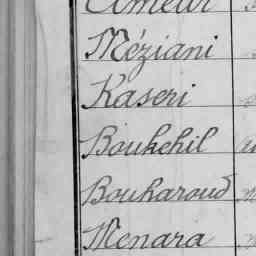 Ameur
Méziani
Kaseri
Bouhehil
Bouharoud
Menara